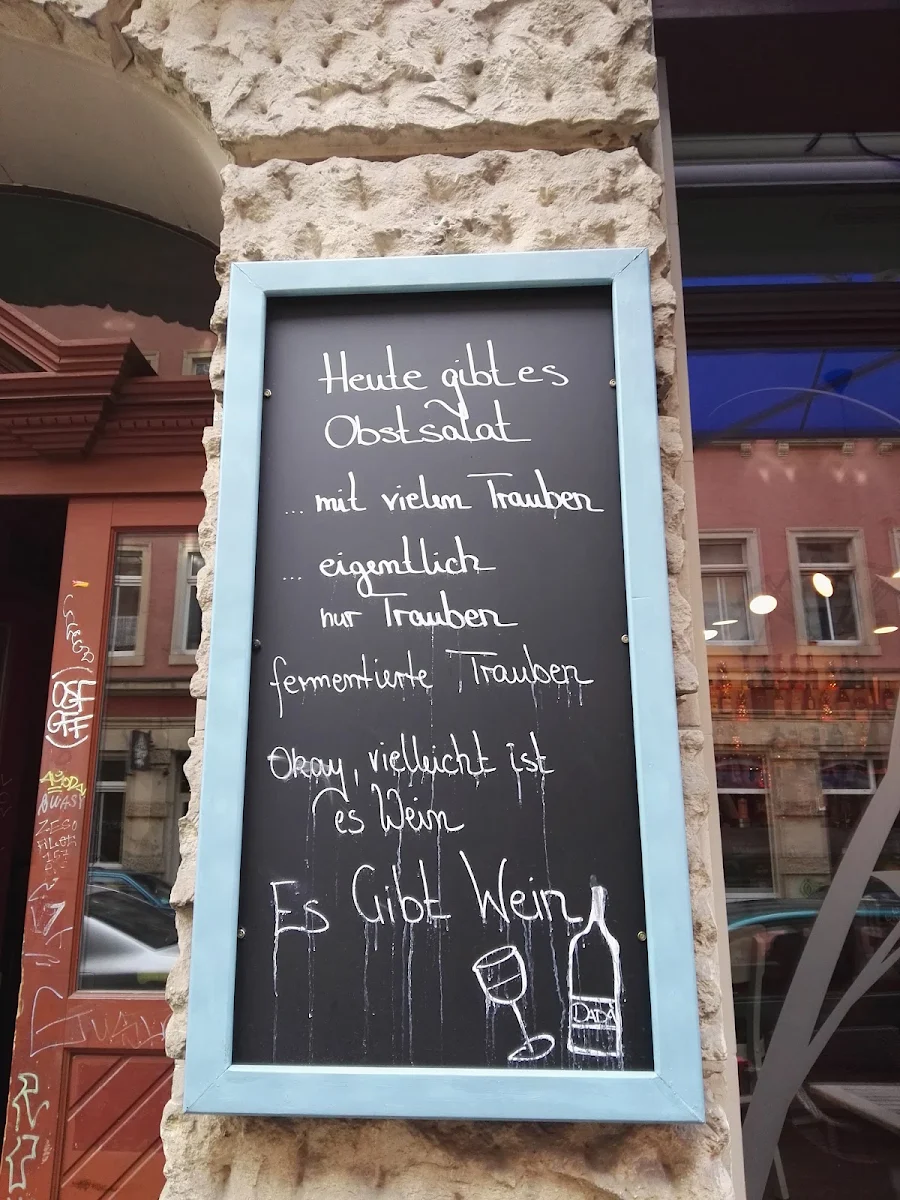 Heute gibt es
Obstsalat
... mit vielen Trauben
... eigentlich
nur Trauben
fermentierte Trauben
Okay, vielleicht ist
es Wein
Es Gibt Wein
DADA